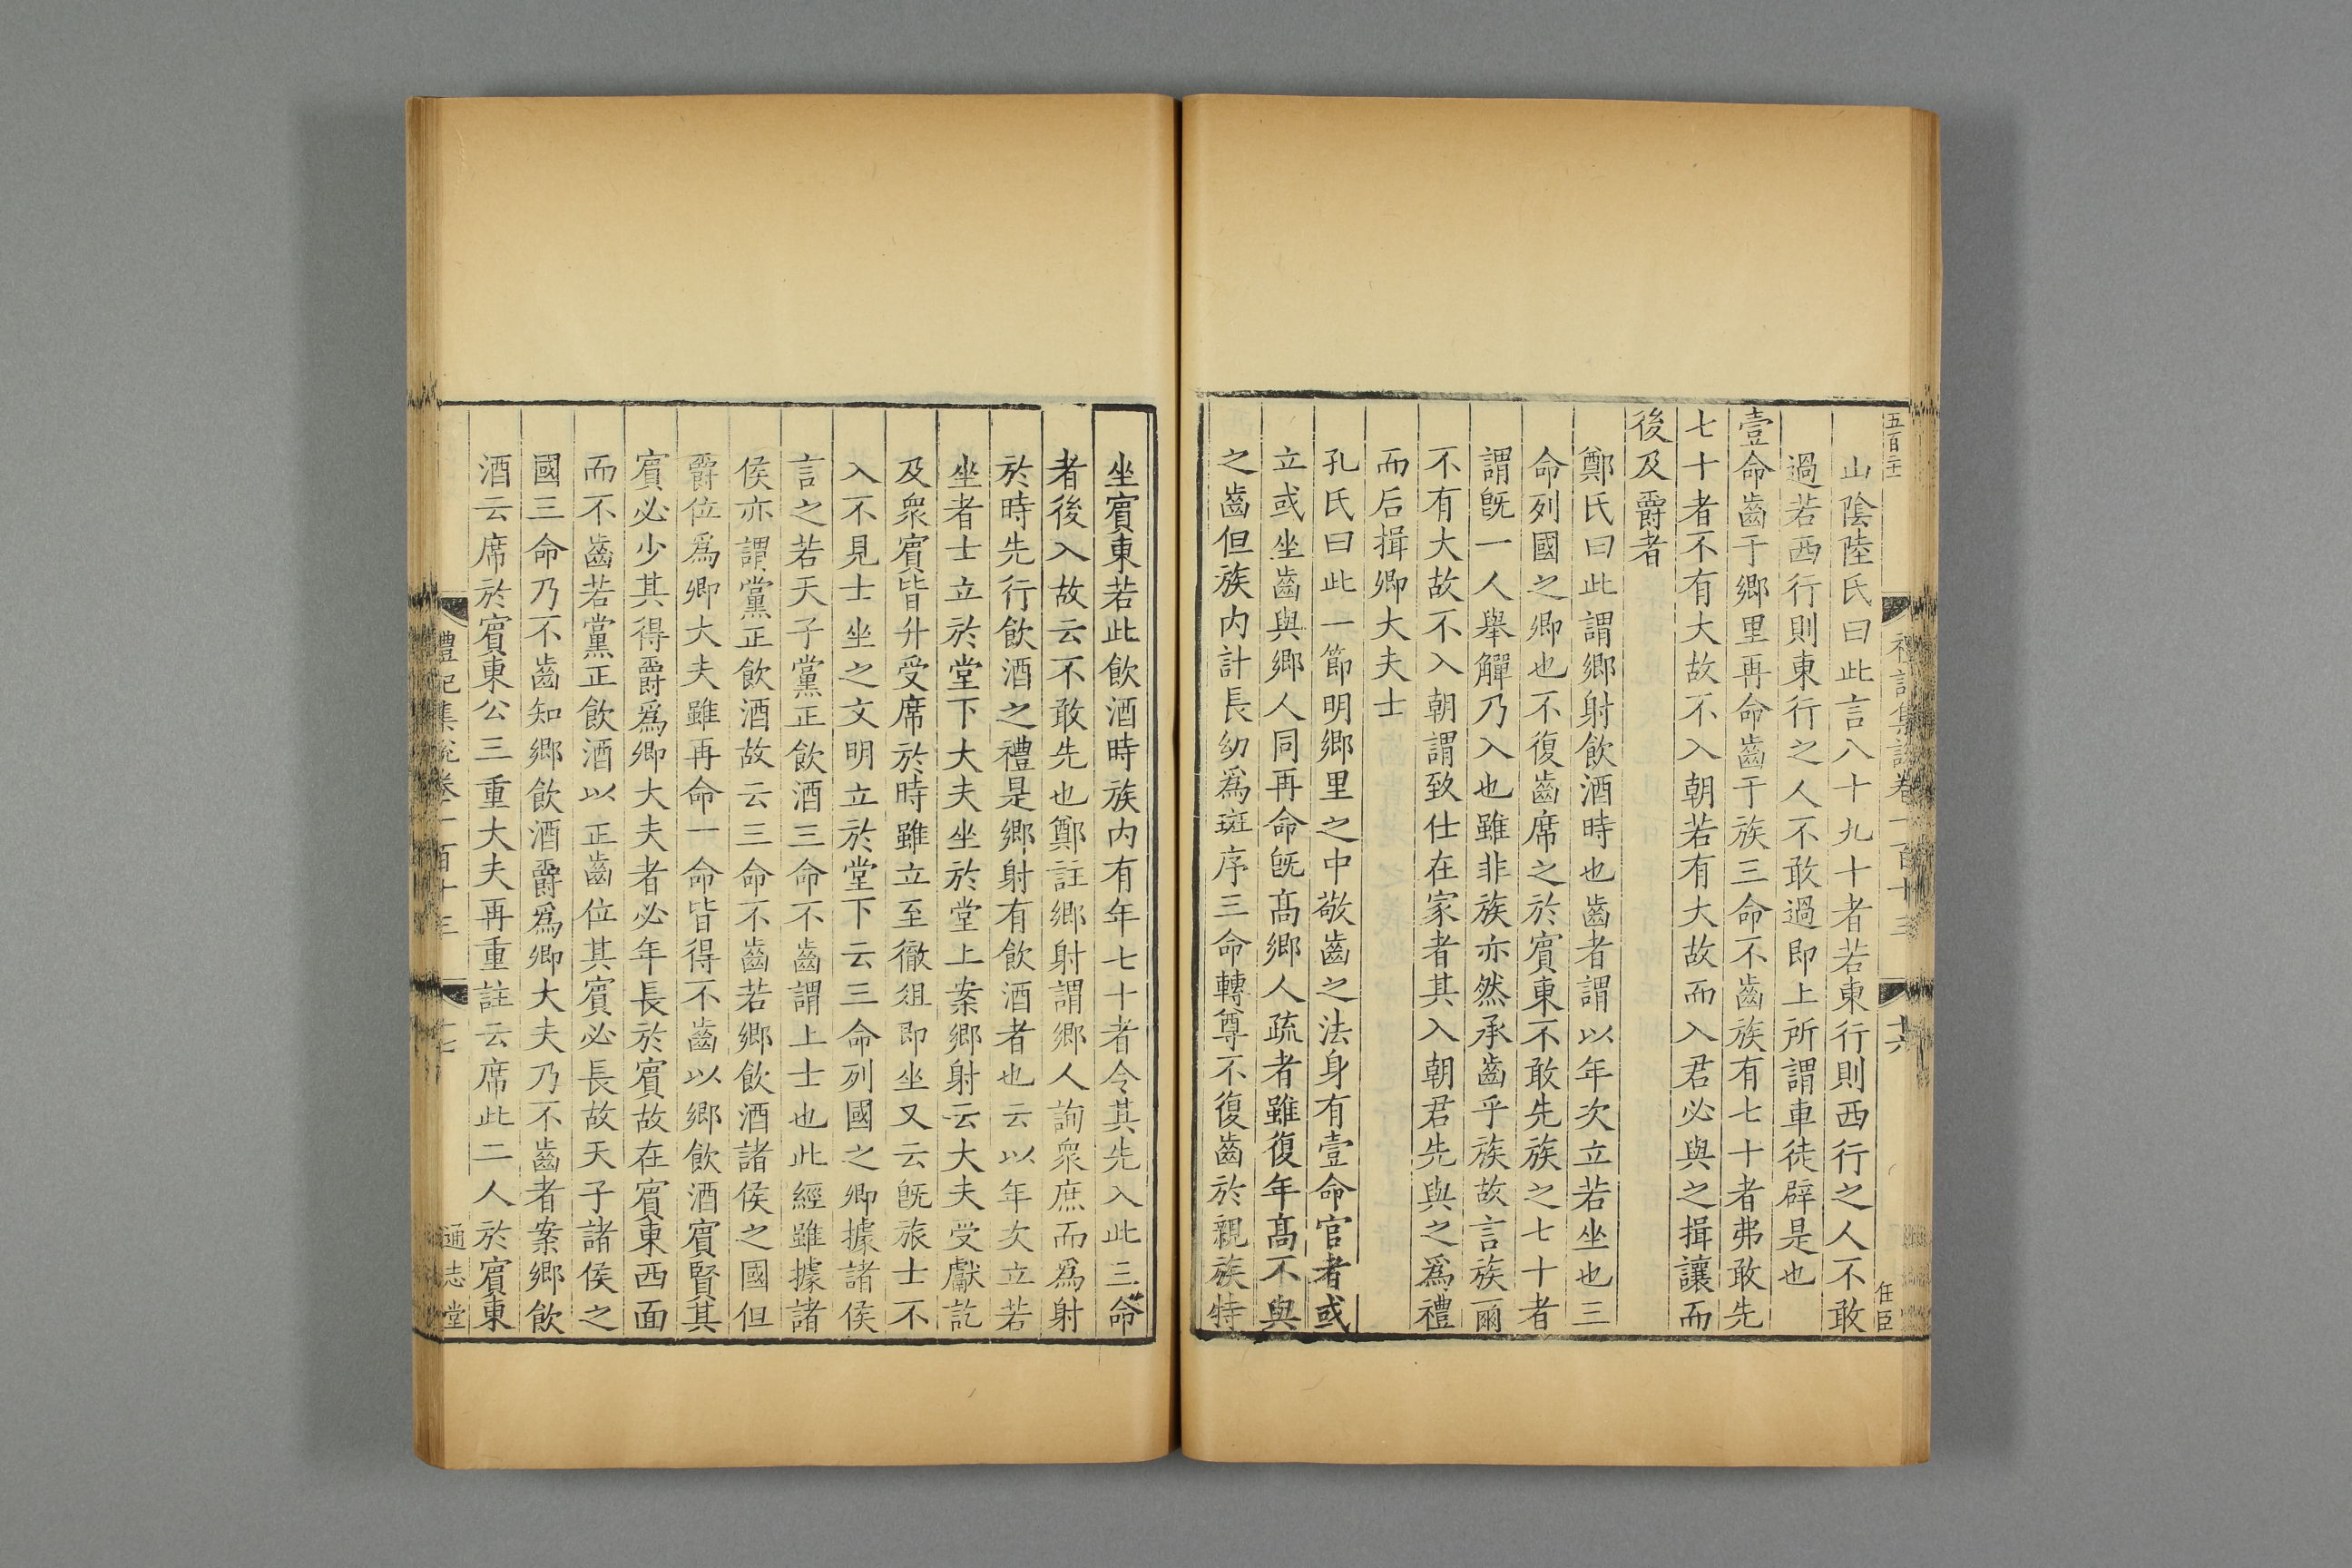 五百二十
禮記集説卷一百十三
十六
任臣
山陰陸氏曰此言八十九十者若東行則西行之人不敢
過若西行則東行之人不敢過即上所謂車徒辟是也
壹命齒于鄉里再命齒于族三命不齒族有七十者弗敢先
七十者不有大故不入朝若有大故而入君必與之揖讓而
後及爵者
鄭氏曰此謂鄉射飲酒時也齒者謂以年次立若坐也三
命列國之卿也不復齒席之於賓東不敢先族之七十者
謂旣一人舉觶乃入也雖非族亦然承齒乎族故言族爾
不有大故不入朝謂致仕在家者其入朝君先與之爲禮
而后揖卿大夫士
孔氏曰此一節明鄉里之中敬齒之法身有壹命官者或
立或坐齒與鄉人同再命旣髙鄉人疏者雖復年髙不與
之齒但族内計長幼爲斑序三命轉尊不復齒於親族特
坐賓東若此飲酒時族内有年七十者令其先入此三命
者後入故云不敢先也鄭註鄉射謂鄉人詢衆庶而爲射
於時先行飲酒之禮是鄉射有飲酒者也云以年次立若
坐者士立於堂下大夫坐於堂上案鄉射云大夫受獻訖
及衆賓皆升受席於時雖立至徹俎即坐又云旣旅士不
入不見士坐之文明立於堂下云三命列國之卿據諸侯
言之若天子黨正飲酒三命不齒謂上士也此經雖據諸
侯亦謂黨正飲酒故云三命不齒若鄉飲酒諸侯之國但
爵位爲卿大夫雖再命一命皆得不齒以鄉飲酒賓賢其
賓必少其得爵爲卿大夫者必年長於賓故在賓東西面
而不齒若黨正飲酒以正齒位其賓必長故天子諸侯之
國三命乃不齒知鄉飲酒爵爲卿大夫乃不齒者案鄉飲
酒云席於賓東公三重大夫再重註云席此二人於賓東
禮記集説卷一百十三
十七
通志堂